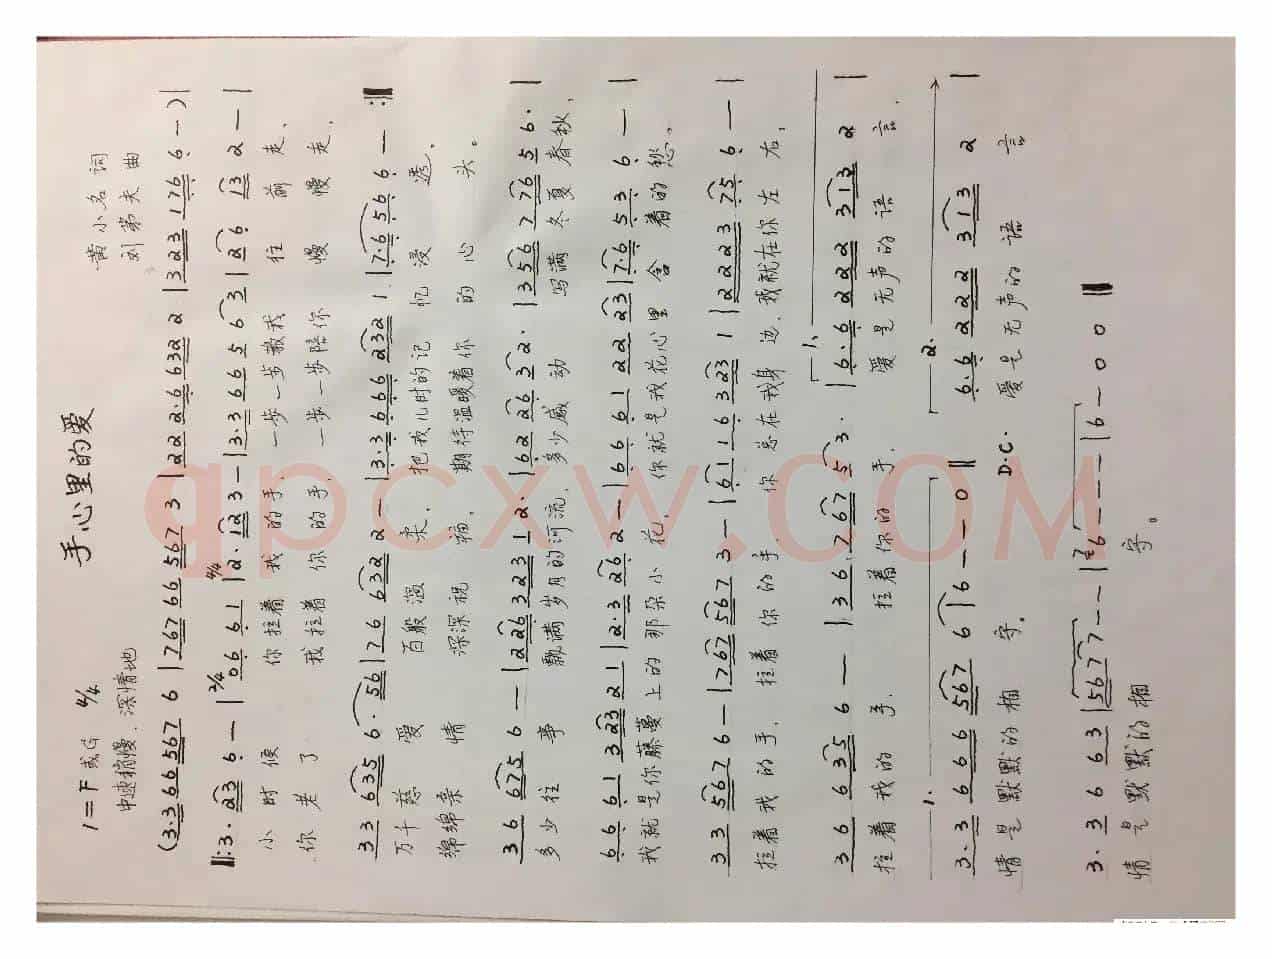 手心里的爱
1=F或G 4/4
黄小名 词
中速稍慢、深情地
刘第夫 曲
(3·3 6 6 567 6 | 767 66 567 3 | 2 2 2·6 632 2 | 323 176 6 — ) |
‖: 3· 23 6 — | 2/4 06 61 | 4/4 2·123 — | 3·3 66 5 6 3 | 2 6 13 2 — |
小时候 你拉着我的手, 一步一步教我往前走,
你老了 我拉着你的手, 一步一步陪你慢慢走,
33 635 6· 56 | 76 632 2 — | 3·3 666 232 1 | 7·6 56 6 — :‖
万千慈爱 百般温柔, 把我儿时的记忆浸透,
绵绵亲情 深深祝福, 期待温暖着你的心头。
36 675 6 — | 226 323 1 2· | 62 26 3 2· | 356 7 76 5 6· |
多少往事 飘满岁月的河流, 多少感动 写满冬夏春秋,
66 61 323 21 | 2·3 26 2 — | 6 6 61 22 23 | 7·6 53 6 — |
我就是你藤蔓上的那朵小花, 你就是我花心里含着的愁。
33 567 6 — | 767 567 3 — | 61 16 323 1 | 2223 75 6 — |
拉着我的手, 拉着你的手, 你总在我身边, 我就在你左右,
36 635 6 — | 36 767 5 3· | 1. 6·6 222 313 2 |
拉着我的手, 拉着你的手, 爱是无声的语言,
1. 3·3 666 567 6 | 6 — — 0 ‖ 2. 66 222 313 2 |
情是默默的相守。 D.C. 爱是无声的语言
3·3 6 63 | 5677 — — | 6 — — — | 6 — 0 0 ‖
情是默默的相守。
qpcxw.COM